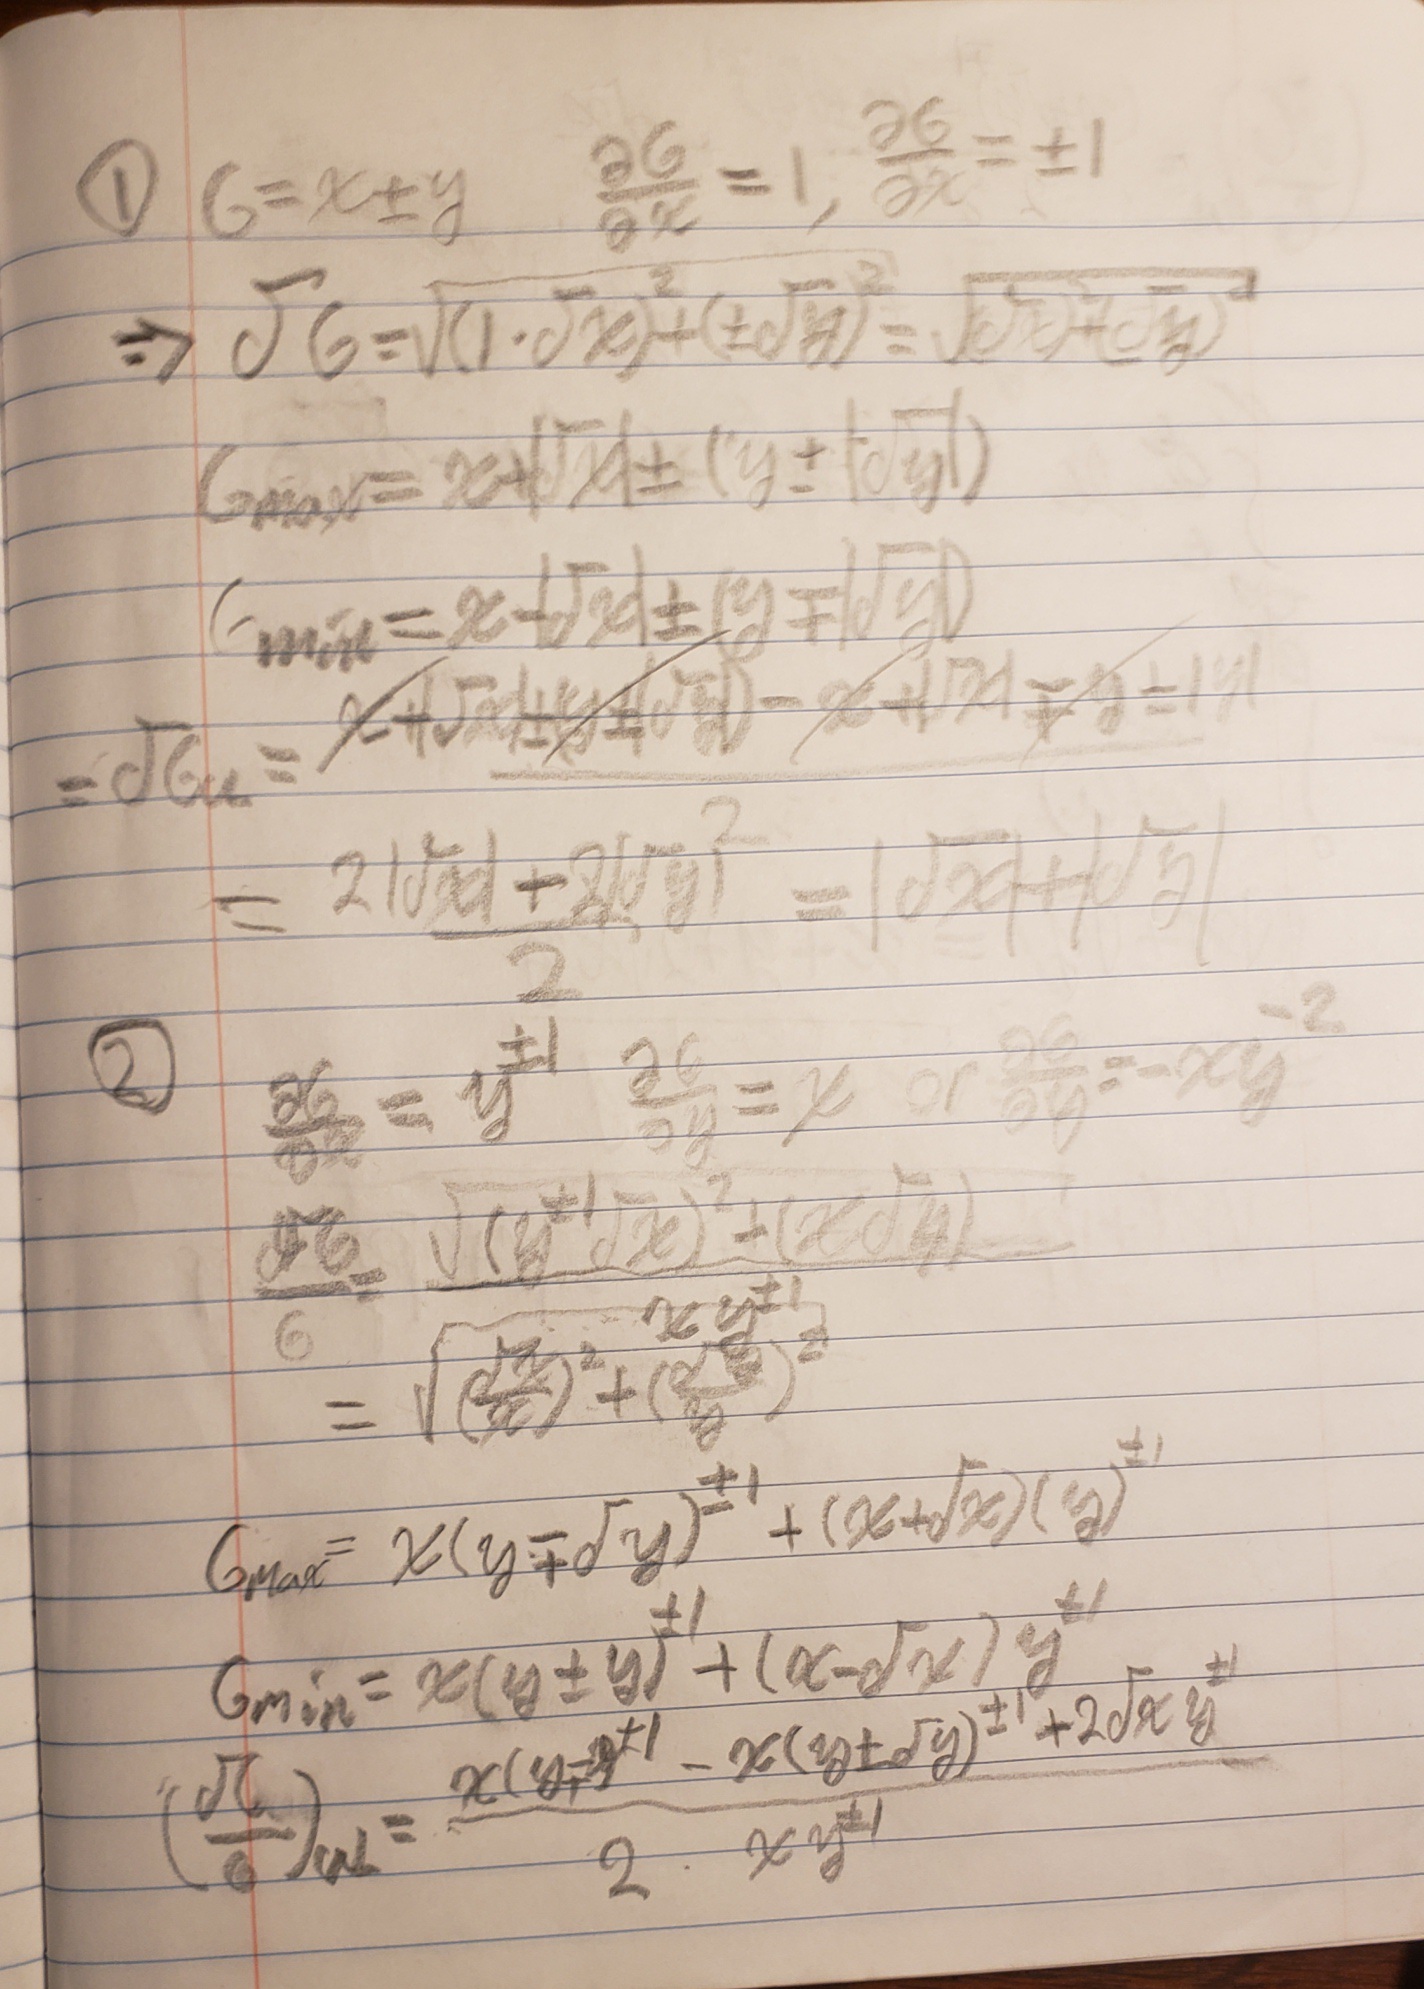 ① G = x ± y   ∂G/∂x = 1, ∂G/∂x = ±1
⇒ δG = √((1·δx)² + (±δy)²) = √((δx)² + (δy)²)
Gmax = x + |δx| ± (y ± |δy|)
Gmin = x - |δx| ± (y ∓ |δy|)
= δGu = (x + |δx| ± (y ± |δy|) - x + |δx| ∓ y ± |y|) / 2
= (2|δx| + 2|δy|) / 2 = |δx| + |δy|
② ∂G/∂x = y^±1   ∂G/∂y = x or ∂G/∂y = -xy^-2
δG/G = √((y^±1 δx)² + (xδy) / xy^±1
= √((δx/x)² + (δy/y)²)
Gmax = x(y ∓ δy)^±1 + (x + δx)(y)^±1
Gmin = x(y ± y)^±1 + (x - δx) y^±1
(δG/G) = (x(y ∓ y^±1 - x(y ± δy)^±1 + 2δx y^±1) / 2 · xy^±1